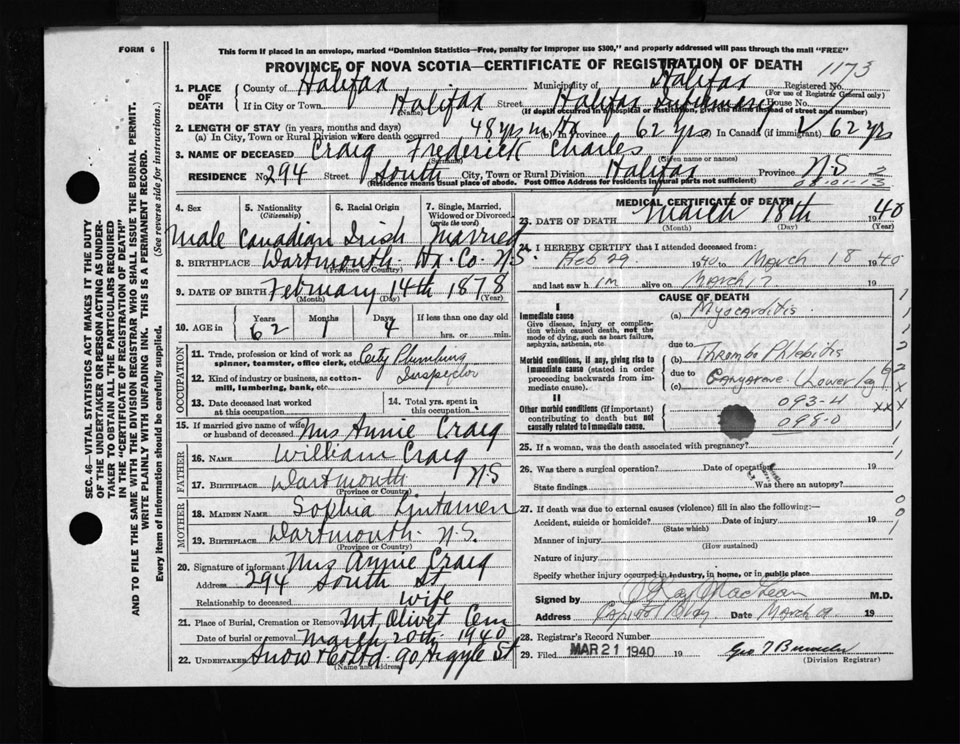 FORM 6
This form if placed in an envelope, marked "Dominion Statistics—Free, penalty for improper use $300," and properly addressed will pass through the mail "FREE"
PROVINCE OF NOVA SCOTIA—CERTIFICATE OF REGISTRATION OF DEATH
1173
1. PLACE OF DEATH County of Halifax Municipality of Halifax Registered No.
(For use of Registrar General only)
If in City or Town Halifax Street Halifax Infirmary House No.
(Name) (If death occurred in a hospital or institution, give the name instead of street and number)
2. LENGTH OF STAY (in years, months and days)
(a) In City, Town or Rural Division where death occurred 48 yrs in Hx In Province 62 yrs In Canada (if immigrant) 62 yrs
3. NAME OF DECEASED Craig Frederick Charles
(Surname) (Given name or names)
RESIDENCE No. 294 Street South City, Town or Rural Division Halifax Province N.S 2
(Residence means usual place of abode. Post Office Address for residents in rural parts not sufficient) 03-01-13
SEC. 46—VITAL STATISTICS ACT MAKES IT THE DUTY
OF THE UNDERTAKER OR PERSON ACTING AS UNDERTAKER
TO OBTAIN ALL THE PARTICULARS REQUIRED
IN THE "CERTIFICATE OF REGISTRATION OF DEATH"
AND TO FILE THE SAME WITH THE DIVISION REGISTRAR WHO SHALL ISSUE THE BURIAL PERMIT.
WRITE PLAINLY WITH UNFADING INK. THIS IS A PERMANENT RECORD.
Every item of information should be carefully supplied. (See reverse side for instructions.)
4. Sex 5. Nationality (Citizenship) 6. Racial Origin 7. Single, Married, Widowed or Divorced (write the word)
Male Canadian Irish Married
8. BIRTHPLACE Dartmouth Hx. Co. N.S.
(Province or Country)
9. DATE OF BIRTH February 14th 1878
(Month) (Day) (Year)
10. AGE in Years Months Days If less than one day old
62 1 4 hrs. or min.
OCCUPATION
11. Trade, profession or kind of work as spinner, teamster, office clerk, etc. City Plumbing
12. Kind of industry or business, as cotton-mill, lumbering, bank, etc. Inspector
13. Date deceased last worked at this occupation
14. Total yrs. spent in this occupation
15. If married give name of wife or husband of deceased Mrs Annie Craig
FATHER
16. NAME William Craig
17. BIRTHPLACE Dartmouth N.S
(Province or Country)
MOTHER
18. MAIDEN NAME Sophia
19. BIRTHPLACE Dartmouth N.S.
(Province or Country)
20. Signature of informant Mrs Annie Craig
Address 294 South St
Relationship to deceased wife
21. Place of Burial, Cremation or Removal Mt Olivet Cem
Date of burial or removal March 20th 1940
22. UNDERTAKER Snow & Co Ltd 90 Argyle St
(Name and address)
MEDICAL CERTIFICATE OF DEATH
23. DATE OF DEATH March 18th 1940
(Month) (Day) (Year)
24. I HEREBY CERTIFY that I attended deceased from
Feb 29 1940 to March 18 1940
and last saw him alive on March 17 19
CAUSE OF DEATH
I
Immediate cause (a) Myocarditis
Give disease, injury or complication which caused death, not the mode of dying, such as heart failure, asphyxia, asthenia, etc.
due to
Morbid conditions, if any, giving rise to immediate cause (stated in order proceeding backwards from immediate cause). (b) Thrombo Phlebitis
due to
(c) Gangrene Lower leg
II
Other morbid conditions (if important) contributing to death but not causally related to immediate cause.
093-4
098-0
25. If a woman, was the death associated with pregnancy?
26. Was there a surgical operation? Date of operation 19
State findings Was there an autopsy?
27. If death was due to external causes (violence) fill in also the following:—
Accident, suicide or homicide? Date of injury 19
(State which)
Manner of injury
(How sustained)
Nature of injury
Specify whether injury occurred in industry, in home, or in public place
Signed by MacLean M.D.
Address Capitol Bldg Date March 19
28. Registrar's Record Number
29. Filed MAR 21 1940 19
(Division Registrar)